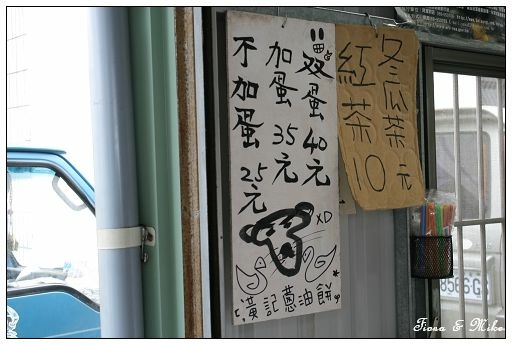 雙蛋 40元
加蛋 35元
不加蛋 25元
XD
潢記蔥油餅
冬瓜茶
紅茶
10元
8566
Fiona & Mike